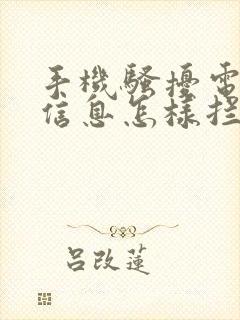 手機騷擾電
信息怎樣拦
吕改蓮